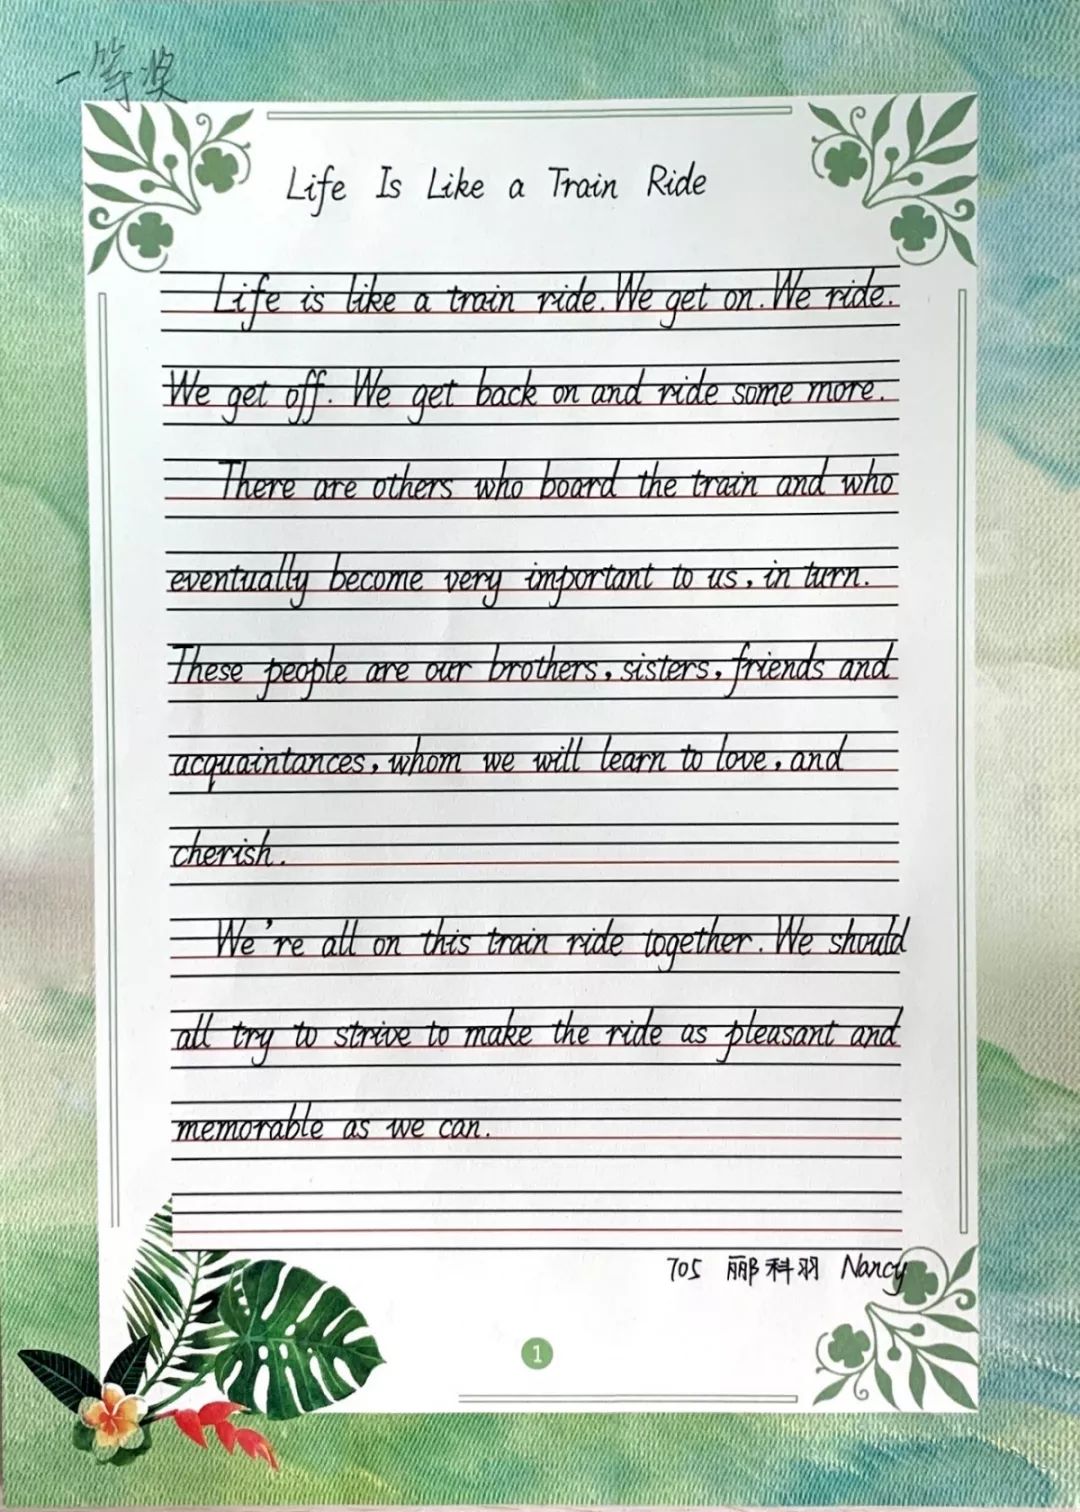 一等奖
Life Is Like a Train Ride
Life is like a train ride. We get on. We ride.
We get off. We get back on and ride some more.
There are others who board the train and who
eventually become very important to us, in turn.
These people are our brothers, sisters, friends and
acquaintances, whom we will learn to love, and
cherish.
We're all on this train ride together. We should
all try to strive to make the ride as pleasant and
memorable as we can.
705 郦科羽 Nancy
1